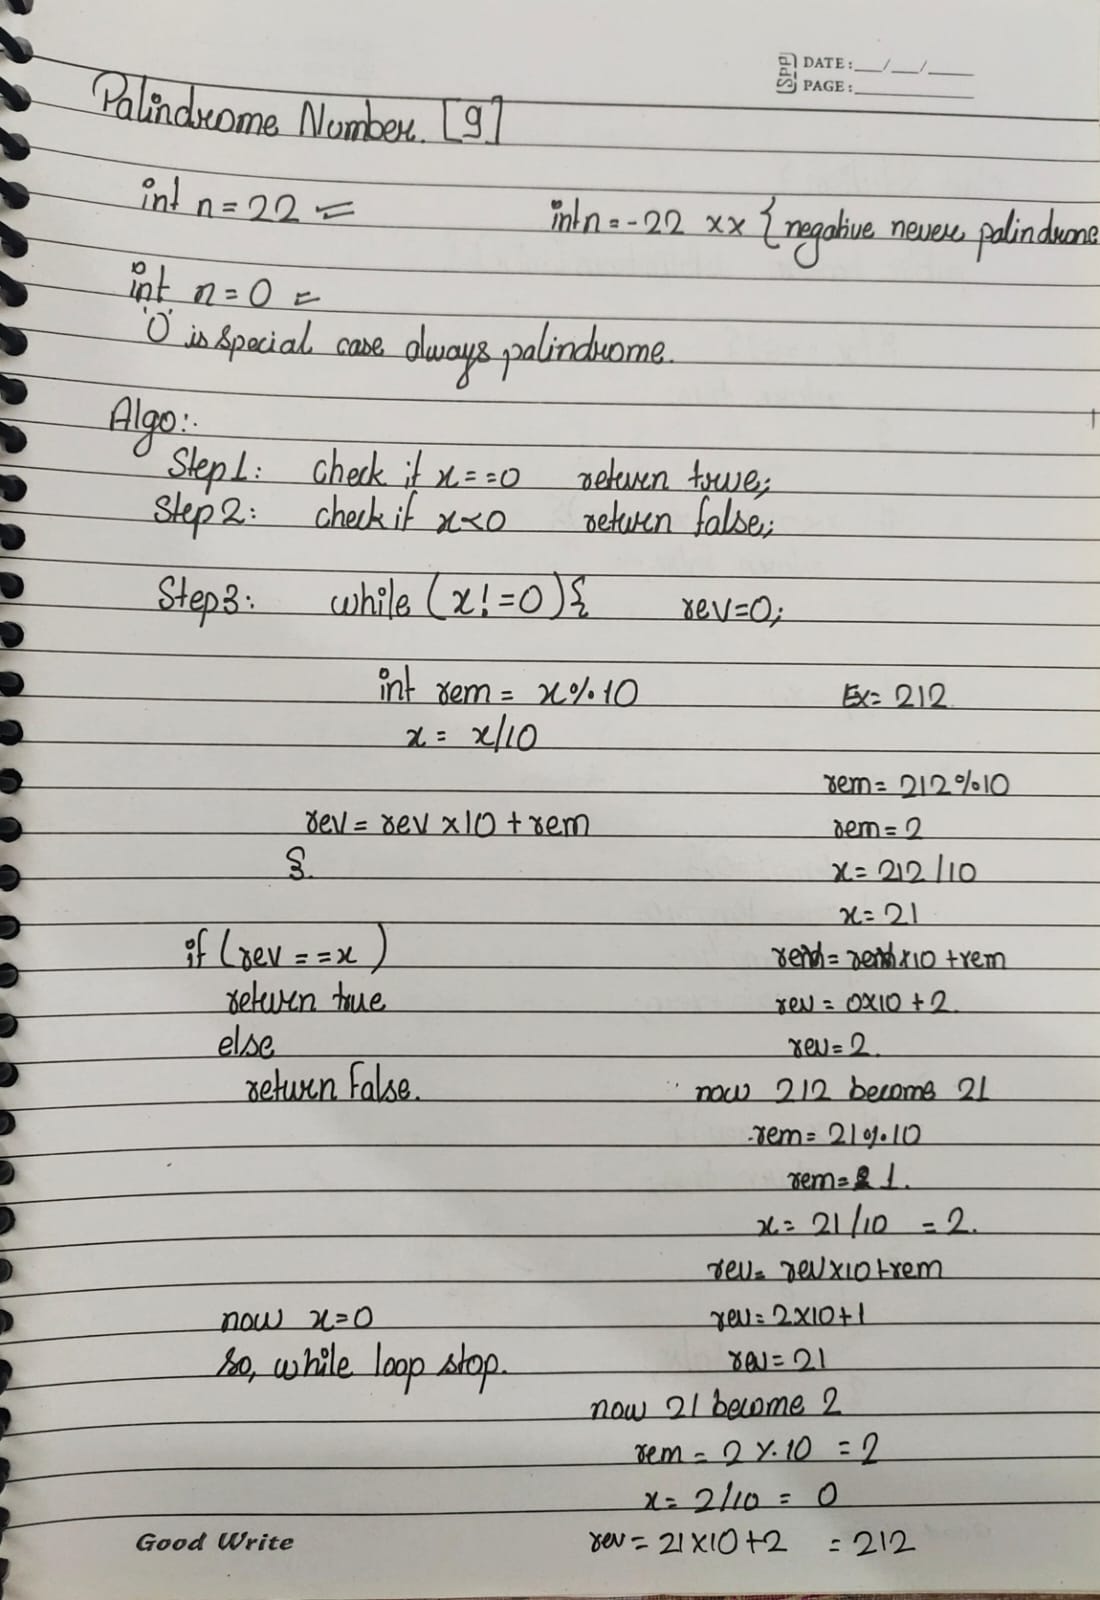 SPP DATE: __/__/____
PAGE: ________
Palindrome Number. [9]
int n = 22 int n = -22 xx { negative never palindrome
int n = 0
'0' is special case always palindrome.
Algo:
Step 1: check if x == 0 return true;
Step 2: check if x < 0 return false;
Step 3: while (x! = 0) { rev = 0;
int rem = x % 10
x = x/10
rev = rev x 10 + rem
}.
if (rev == x )
return true
else
return false.
now x = 0
so, while loop stop.
Ex = 212
rem = 212 % 10
rem = 2
x = 212 / 10
x = 21
rev = rev x 10 + rem
rev = 0x10 + 2.
rev = 2.
now 212 become 21
rem = 21 % 10
rem = 1.
x = 21 / 10 = 2.
rev = rev x 10 + rem
rev = 2 x 10 + 1
rev = 21
now 21 become 2
rem = 2 % 10 = 2
x = 2/10 = 0
rev = 21 x 10 + 2 = 212
Good Write